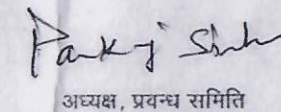 Pankaj Sinh
अध्यक्ष, प्रवन्ध समिति